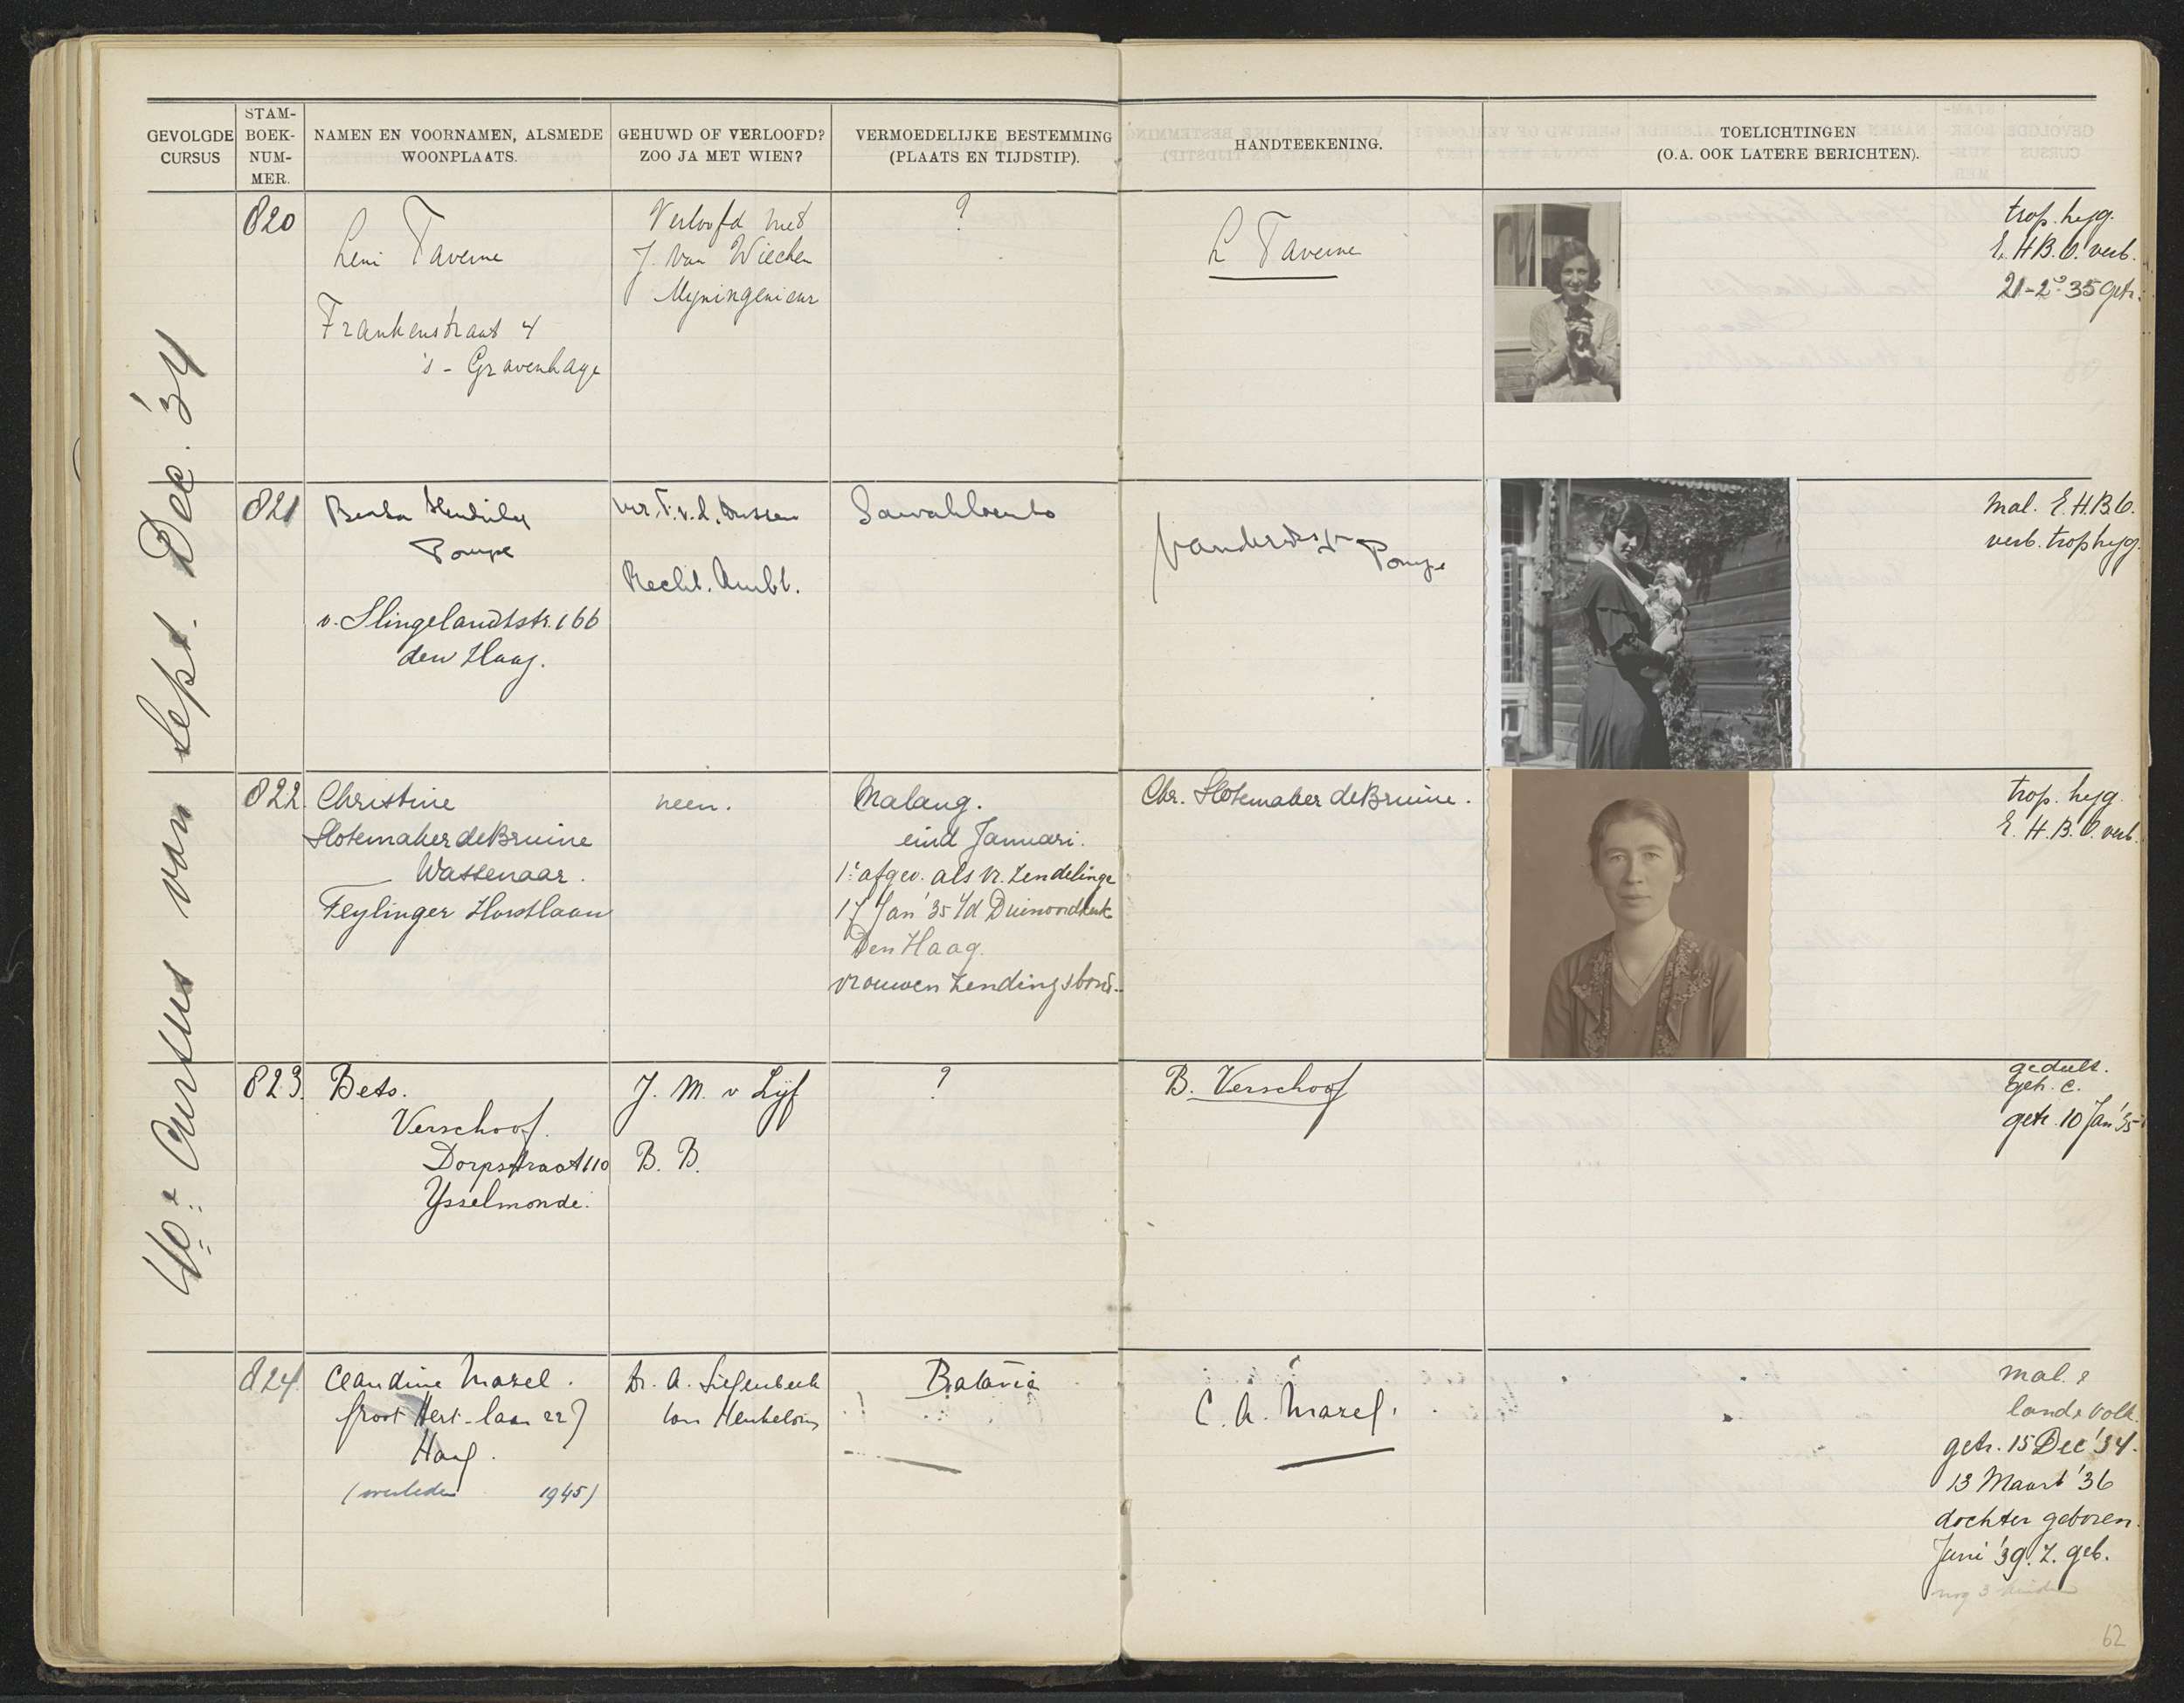 GEVOLGDE CURSUS
STAM-BOEK-NUM-MER.
NAMEN EN VOORNAMEN, ALSMEDE WOONPLAATS.
GEHUWD OF VERLOOFD? ZOO JA MET WIEN?
VERMOEDELIJKE BESTEMMING (PLAATS EN TIJDSTIP).
HANDTEEKENING.
TOELICHTINGEN (O.A. OOK LATERE BERICHTEN).
Cursus van Sept. Dec. '34
820
Leni Taverne
Frankenstraat 4
's-Gravenhage
Verloofd met
J. van Wiechen
Mijningenieur
?
L Taverne
trop. hyg.
E.H.B.O. verb.
21-2-35 getr.
821
Pompe
v. Slingelandtstr. 166
den Haag.
Recht. Ambt.
Sawahloento
Pompe
mal. E.H.B.O.
verb. trop hyg.
822.
Christine
Slotemaker de Bruine
Wassenaar.
Teylinger Horstlaan
neen.
Malang.
eind Januari.
1e afgev. als vr. zendelinge
17 Jan '35 i/d Duinoordkerk
Den Haag.
vrouwen zendingsbond.
Chr. Slotemaker de Bruine.
trop. hyg.
E.H.B.O. verb.
823.
Bets.
Verschoof.
Dorpstraat 110
Ysselmonde.
J. M. v Lijf
B. B.
?
B. Verschoof
gedeelt.
geh. c.
getr. 10 Jan '35
824.
Claudine Mazel.
Groot Hert. laan 227
Haag.
(overleden 1945)
Dr. A. Siegenbeek
van Heukelom
Batavia
C. A. Mazel.
mal. &
land & volk.
getr. 15 Dec '34.
13 Maart '36
dochter geboren.
Juni '39. Z. geb.
nog 3 kinderen
62